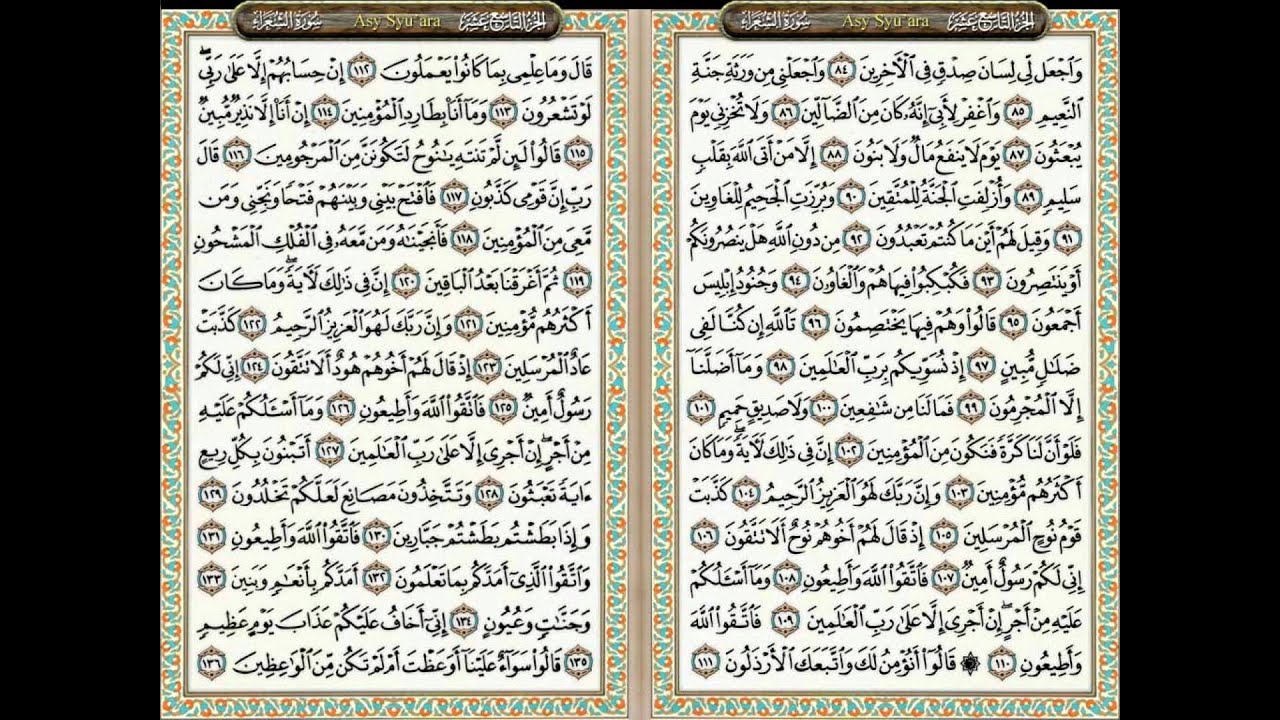 سُورَةُ الشُّعَرَاءِ Asy Syu'ara الجُزْءُ التَّاسِعَ عَشَرَ
وَٱجْعَل لِّى لِسَانَ صِدْقٍ فِى ٱلْأَخِرِينَ ٨٤ وَٱجْعَلْنِى مِن وَرَثَةِ جَنَّةِ
ٱلنَّعِيمِ ٨٥ وَٱغْفِرْ لِأَبِىٓ إِنَّهُۥ كَانَ مِنَ ٱلضَّآلِّينَ ٨٦ وَلَا تُخْزِنِى يَوْمَ
يُبْعَثُونَ ٨٧ يَوْمَ لَا يَنفَعُ مَالٌ وَلَا بَنُونَ ٨٨ إِلَّا مَنْ أَتَى ٱللَّهَ بِقَلْبٍ
سَلِيمٍ ٨٩ وَأُزْلِفَتِ ٱلْجَنَّةُ لِلْمُتَّقِينَ ٩٠ وَبُرِّزَتِ ٱلْجَحِيمُ لِلْغَاوِينَ
٩١ وَقِيلَ لَهُمْ أَيْنَ مَا كُنتُمْ تَعْبُدُونَ ٩٢ مِن دُونِ ٱللَّهِ هَلْ يَنصُرُونَكُمْ
أَوْ يَنتَصِرُونَ ٩٣ فَكُبْكِبُوا۟ فِيهَا هُمْ وَٱلْغَاوُۥنَ ٩٤ وَجُنُودُ إِبْلِيسَ
أَجْمَعُونَ ٩٥ قَالُوا۟ وَهُمْ فِيهَا يَخْتَصِمُونَ ٩٦ تَٱللَّهِ إِن كُنَّا لَفِى
ضَلَٰلٍ مُّبِينٍ ٩٧ إِذْ نُسَوِّيكُم بِرَبِّ ٱلْعَٰلَمِينَ ٩٨ وَمَآ أَضَلَّنَآ
إِلَّا ٱلْمُجْرِمُونَ ٩٩ فَمَا لَنَا مِن شَٰفِعِينَ ١٠٠ وَلَا صَدِيقٍ حَمِيمٍ ١٠١
فَلَوْ أَنَّ لَنَا كَرَّةً فَنَكُونَ مِنَ ٱلْمُؤْمِنِينَ ١٠٢ إِنَّ فِى ذَٰلِكَ لَأَيَةً ۖ وَمَا كَانَ
أَكْثَرُهُم مُّؤْمِنِينَ ١٠٣ وَإِنَّ رَبَّكَ لَهُوَ ٱلْعَزِيزُ ٱلرَّحِيمُ ١٠٤ كَذَّبَتْ
قَوْمُ نُوحٍ ٱلْمُرْسَلِينَ ١٠٥ إِذْ قَالَ لَهُمْ أَخُوهُمْ نُوحٌ أَلَا تَتَّقُونَ ١٠٦
إِنِّى لَكُمْ رَسُولٌ أَمِينٌ ١٠٧ فَٱتَّقُوا۟ ٱللَّهَ وَأَطِيعُونِ ١٠٨ وَمَآ أَسْـَٔلُكُمْ
عَلَيْهِ مِنْ أَجْرٍ ۖ إِنْ أَجْرِىَ إِلَّا عَلَىٰ رَبِّ ٱلْعَٰلَمِينَ ١٠٩ فَٱتَّقُوا۟ ٱللَّهَ
وَأَطِيعُونِ ١١٠ ۞ قَالُوٓا۟ أَنُؤْمِنُ لَكَ وَٱتَّبَعَكَ ٱلْأَرْذَلُونَ ١١١
سُورَةُ الشُّعَرَاءِ Asy Syu'ara الجُزْءُ التَّاسِعَ عَشَرَ
قَالَ وَمَا عِلْمِى بِمَا كَانُوا۟ يَعْمَلُونَ ١١٢ إِنْ حِسَابُهُمْ إِلَّا عَلَىٰ رَبِّى ۖ
لَوْ تَشْعُرُونَ ١١٣ وَمَآ أَنَا۠ بِطَارِدِ ٱلْمُؤْمِنِينَ ١١٤ إِنْ أَنَا۠ إِلَّا نَذِيرٌ مُّبِينٌ
١١٥ قَالُوا۟ لَئِن لَّمْ تَنتَهِ يَٰنُوحُ لَتَكُونَنَّ مِنَ ٱلْمَرْجُومِينَ ١١٦ قَالَ
رَبِّ إِنَّ قَوْمِى كَذَّبُونِ ١١٧ فَٱفْتَحْ بَيْنِى وَبَيْنَهُمْ فَتْحًا وَنَجِّنِى وَمَن
مَّعِىَ مِنَ ٱلْمُؤْمِنِينَ ١١٨ فَأَنجَيْنَٰهُ وَمَن مَّعَهُۥ فِى ٱلْفُلْكِ ٱلْمَشْحُونِ
١١٩ ثُمَّ أَغْرَقْنَا بَعْدُ ٱلْبَاقِينَ ١٢٠ إِنَّ فِى ذَٰلِكَ لَأَيَةً ۖ وَمَا كَانَ
أَكْثَرُهُم مُّؤْمِنِينَ ١٢١ وَإِنَّ رَبَّكَ لَهُوَ ٱلْعَزِيزُ ٱلرَّحِيمُ ١٢٢ كَذَّبَتْ
عَادٌ ٱلْمُرْسَلِينَ ١٢٣ إِذْ قَالَ لَهُمْ أَخُوهُمْ هُودٌ أَلَا تَتَّقُونَ ١٢٤ إِنِّى لَكُمْ
رَسُولٌ أَمِينٌ ١٢٥ فَٱتَّقُوا۟ ٱللَّهَ وَأَطِيعُونِ ١٢٦ وَمَآ أَسْـَٔلُكُمْ عَلَيْهِ
مِنْ أَجْرٍ ۖ إِنْ أَجْرِىَ إِلَّا عَلَىٰ رَبِّ ٱلْعَٰلَمِينَ ١٢٧ أَتَبْنُونَ بِكُلِّ رِيعٍ
ءَايَةً تَعْبَثُونَ ١٢٨ وَتَتَّخِذُونَ مَصَانِعَ لَعَلَّكُمْ تَخْلُدُونَ ١٢٩
وَإِذَا بَطَشْتُم بَطَشْتُمْ جَبَّارِينَ ١٣٠ فَٱتَّقُوا۟ ٱللَّهَ وَأَطِيعُونِ ١٣١
وَٱتَّقُوا۟ ٱلَّذِىٓ أَمَدَّكُم بِمَا تَعْلَمُونَ ١٣٢ أَمَدَّكُم بِأَنْعَٰمٍ وَبَنِينَ ١٣٣
وَجَنَّٰتٍ وَعُيُونٍ ١٣٤ إِنِّىٓ أَخَافُ عَلَيْكُمْ عَذَابَ يَوْمٍ عَظِيمٍ
١٣٥ قَالُوا۟ سَوَآءٌ عَلَيْنَآ أَوَعَظْتَ أَمْ لَمْ تَكُن مِّنَ ٱلْوَٰعِظِينَ ١٣٦